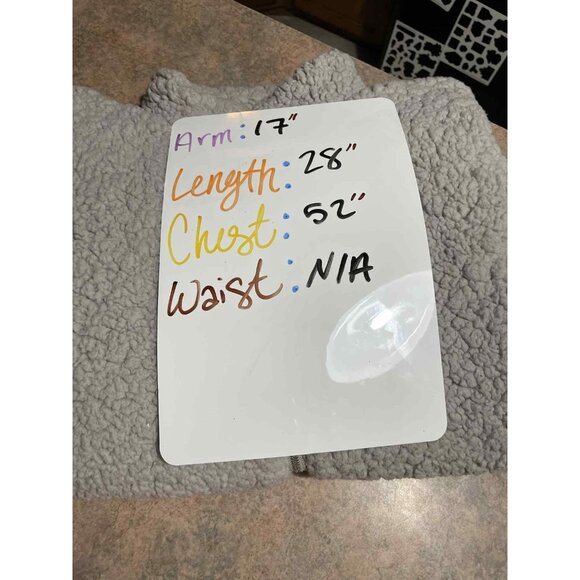 Arm: 17"
Length: 28"
Chest: 52"
Waist: N/A